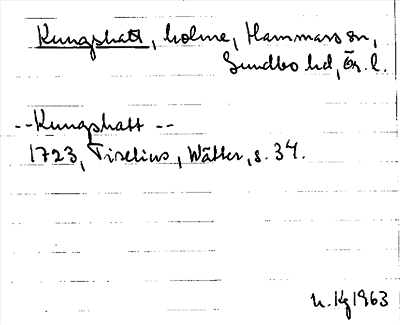 Kungshatt, holme, Hammars sn,
Sundbo hd, Ör. l.
--Kungshatt--
1723, Tiselius, Wätter, s. 34.
n. Kg 1963